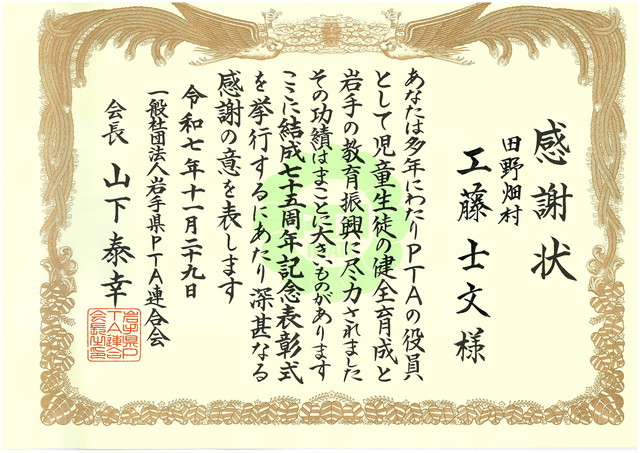 感謝状
田野畑村
工藤士文様
あなたは多年にわたりPTAの役員
として児童生徒の健全育成と
岩手の教育振興に尽力されました
その功績はまことに大きいものがあります
ここに結成七十五周年記念表彰式
を挙行するにあたり深甚なる
感謝の意を表します
令和七年十一月二十九日
一般社団法人岩手県PTA連合会
会長 山下泰幸
岩手県P
TA連合
会長之印